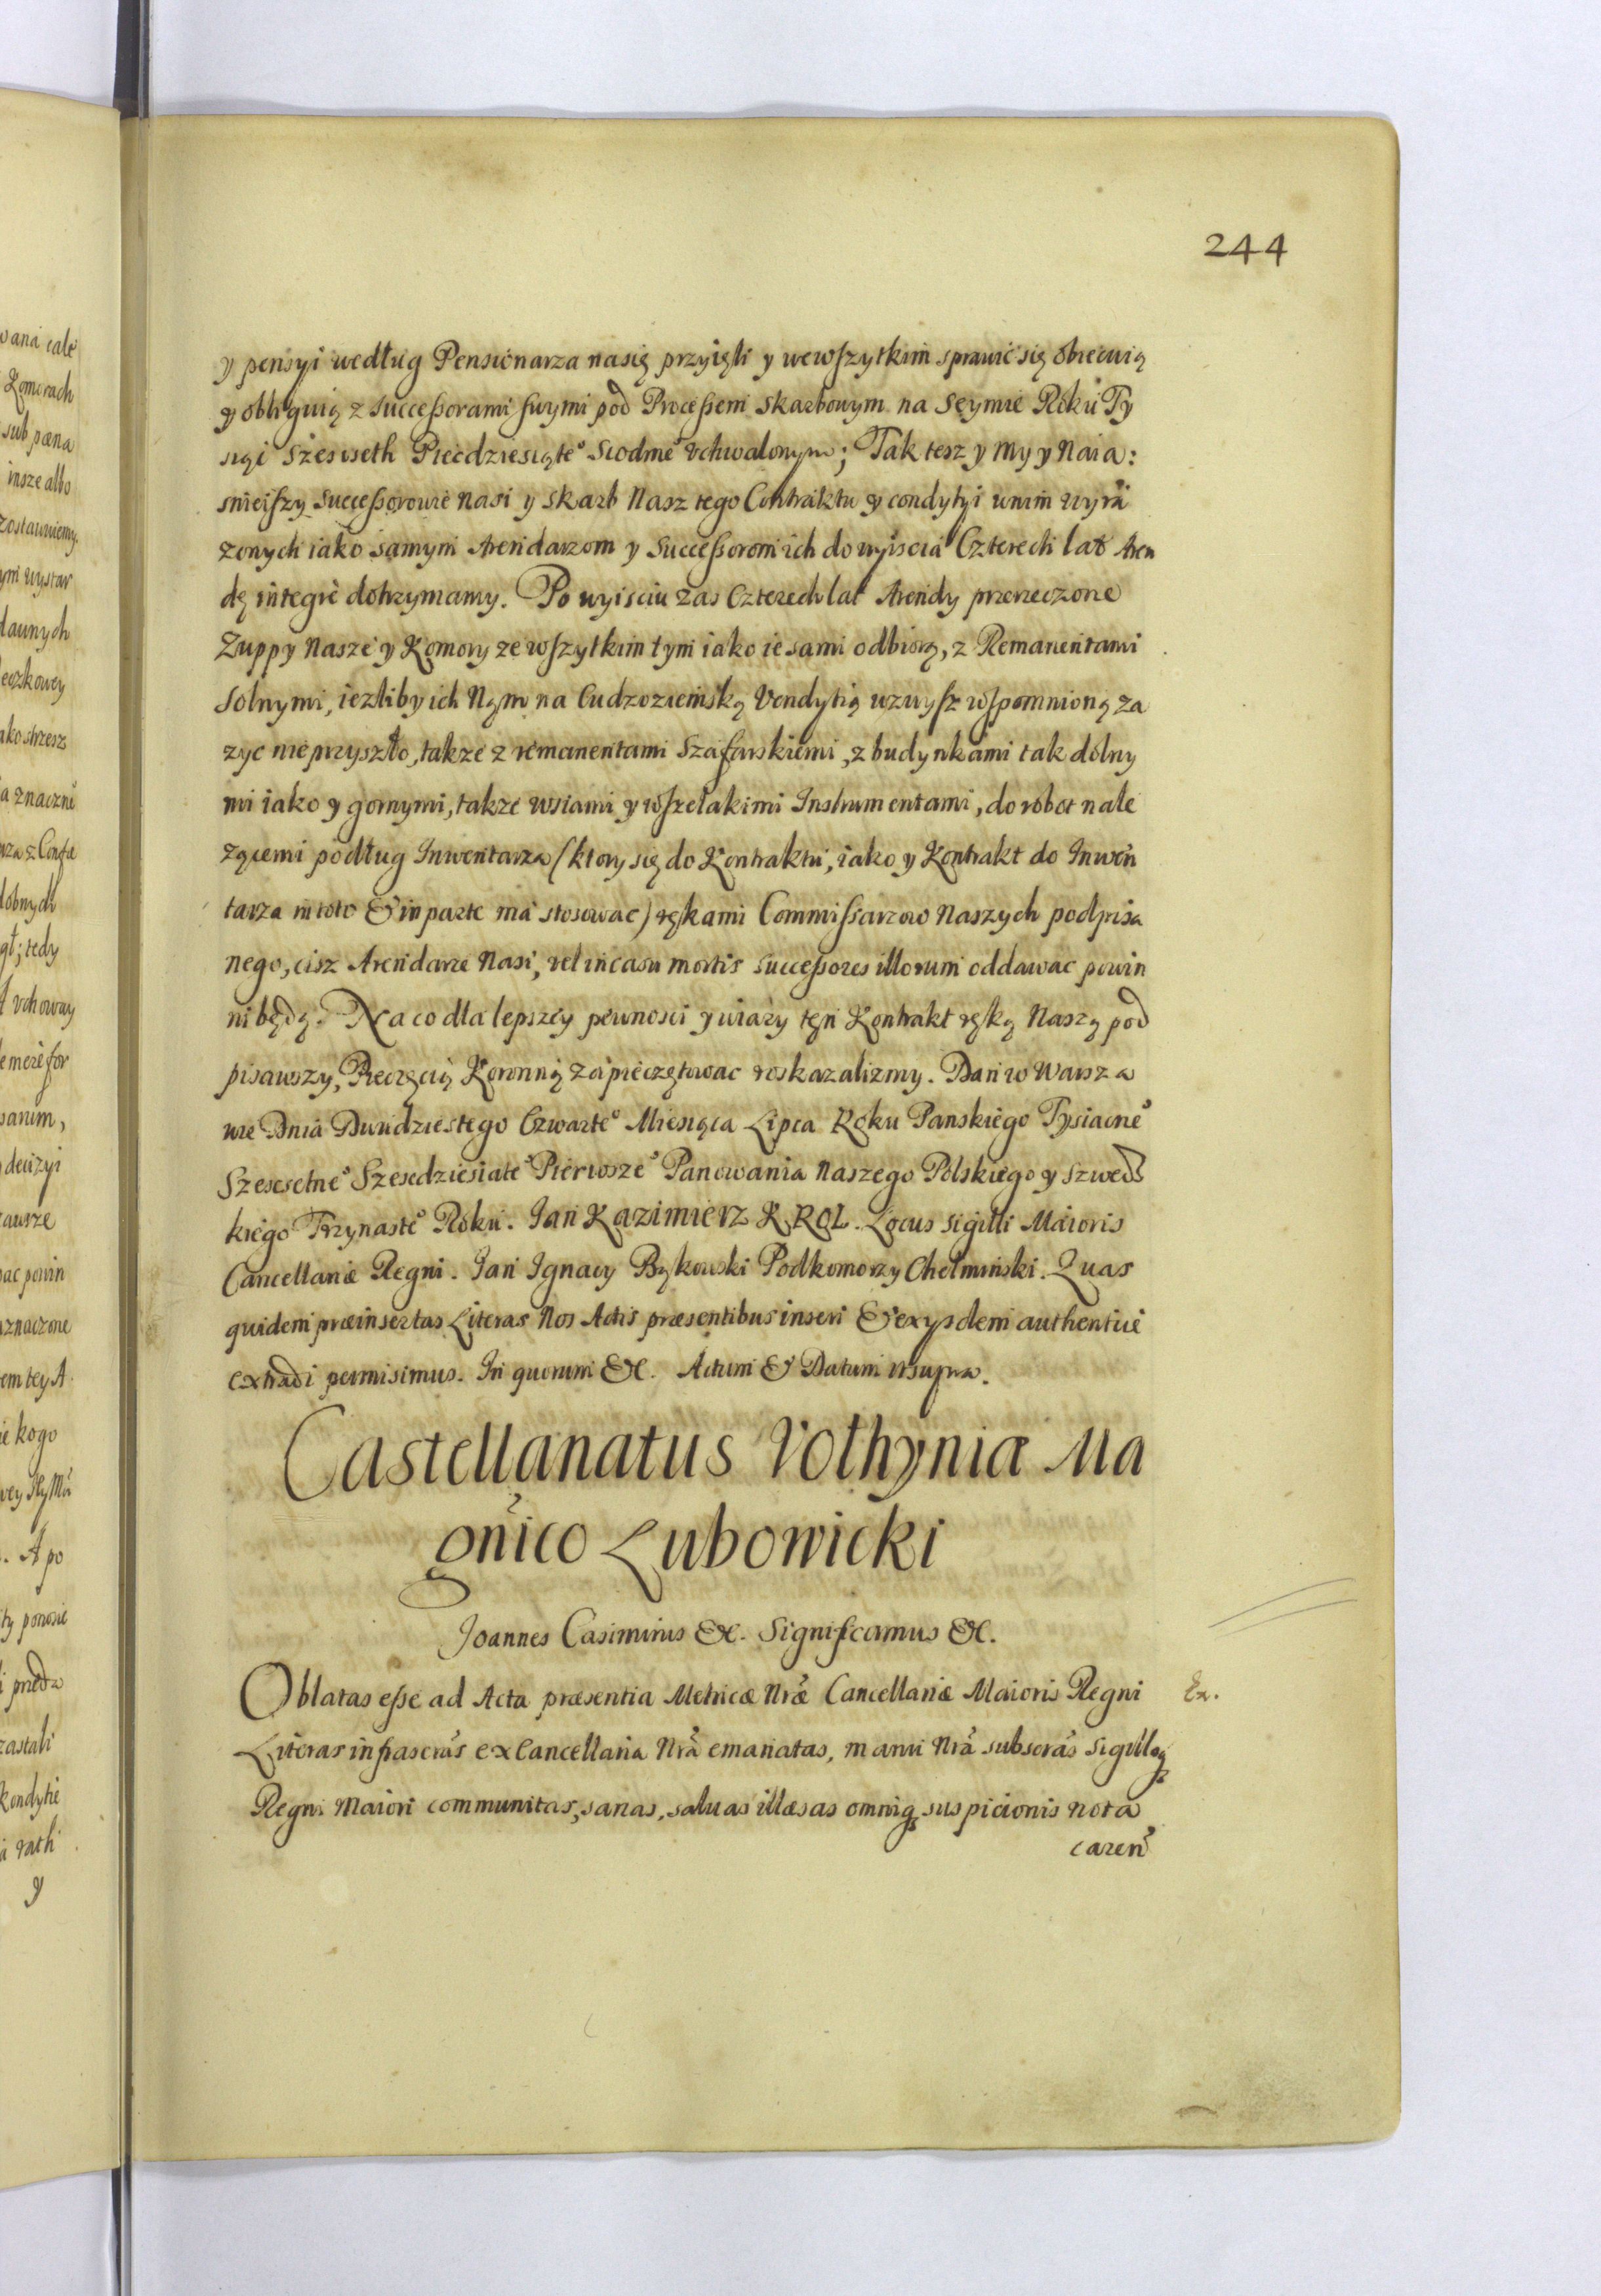 244
y pensyi według Pensionarza nasię przyięli y wewszytkim sprawić się obiecuią
y obliguią z successorami swymi pod Processem skarbowym na Seymie Roku Ty
siąi Szescseth Piecdziesiąte° Siodme° vchwalonym; Tak tesz y My y Naia:
snieiszy successorowie nasi y skarb Nasz tego Contraktu y condytyi wnim wyra
zonych iako samym Arendarzom y Successorom ich do wyiscia Czterech lat Aren
dę integrè dotrzymamy. Po wyisciu zas Czterech lat Arendy przerzeczone
Zuppy Nasze y Komory ze wszytkim tym iako ie sami odbiorą, z Remanentami
Solnymi, iezliby ich Nąm na Cudzoziemską Vendytią wzwysz wspomnioną za
zyc nie przyszło, takze z remanentami Szafarskiemi, z budynkami tak dolny
mi iako y gornymi, takze wsiami y wszelakimi Instrumentami, do robot nale
zącemi podług Inwentarza (ktory się do Kontraktu, iako y Kontrakt do Inwen
tarza in toto & in parte ma stosowac) rękami Commissarzow Naszych podpisa
nego, cisz Arendarze Nasi, vel in casu mortis successores illorum oddawac powin
ni będą. Na co dla lepszey pewnosci y wiary tęn Kontrakt ręką Naszą pod
pisawszy, Pieczęcią Koronną zapieczętowac roskazalizmy. Dan w Warsza
wie Dnia Dwudziestego Czwarte° Miesiąca Lipca Roku Panskiego Tysiacne°
Szescsetne° Szescdziesiate° Pierwsze° Panowania Naszego Polskiego y Szweds
kiego Trzynaste° Roku. Jan Kazimierz KROL. Locus sigilli Maioris
Cancellariæ Regni. Jan Ignacy Bąkowski Podkomorzy Chełmiński. Quas
quidem præinsertas Literas Nos Actis præsentibus inseri & exysdem authenticè
extradi permisimus. In quorum &c. Actum & Datum vt supra.
Castellanatus Volhyniæ Ma
gnico Lubowicki
Joannes Casimirus &c. Significamus &c.
Oblatas esse ad Acta præsentia Metricæ Nræ Cancellariæ Maioris Regni
Ex.
Literas infrascras ex Cancellaria Nra emanatas, manu Nra subscras Sigilloq
Regni Maiori communitas, sanas, saluas illæsas omniq suspicionis nota
caren